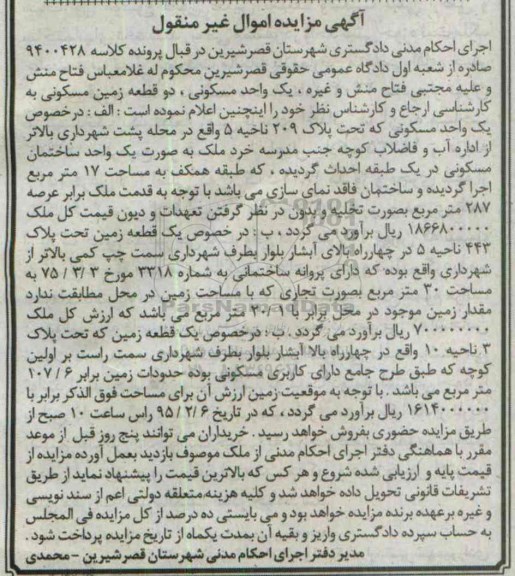 آگهی مزایده اموال غیر منقول
اجرای احکام مدنی دادگستری شهرستان قصرشیرین در قبال پرونده کلاسه ۹۴۰۰۴۲۸
صادره از شعبه اول دادگاه عمومی حقوقی قصرشیرین محکوم له غلامعباس فتاح منش
و علیه مجتبی فتاح منش و غیره ، یک واحد مسکونی ، دو قطعه زمین مسکونی به
کارشناسی ارجاع و کارشناس نظر خود را اینچنین اعلام نموده است : الف : درخصوص
یک واحد مسکونی که تحت پلاک ۲۰۹ ناحیه ۵ واقع در محله پشت شهرداری بالاتر
از اداره آب و فاضلاب کوچه جنب مدرسه خرد ملک به صورت یک واحد ساختمان
مسکونی در یک طبقه احداث گردیده ، که طبقه همکف به مساحت ۱۷ متر مربع
اجرا گردیده و ساختمان فاقد نمای سازی می باشد با توجه به قدمت ملک برابر عرصه
۲۸۷ متر مربع بصورت تخلیه و بدون در نظر گرفتن تعهدات و دیون قیمت کل ملک
۱۸۶۶۸۰۰۰۰۰ ریال برآورد می گردد ، ب : در خصوص یک قطعه زمین تحت پلاک
۴۴۳ ناحیه ۵ در چهارراه بالای آبشار بلوار بطرف شهرداری سمت چپ کمی بالاتر از
شهرداری واقع بوده که دارای پروانه ساختمانی به شماره ۳۳۱۸ مورخ ۳ / ۳ / ۷۵ به
مساحت ۳۰ متر مربع بصورت تجاری که با مساحت زمین در محل مطابقت ندارد
مقدار زمین موجود در محل برابر با ۲۰/۰۹ متر مربع می باشد که ارزش کل ملک
۷۰۰۰۰۰۰۰۰ ریال برآورد می گردد . ب : درخصوص یک قطعه زمین که تحت پلاک
۳ ناحیه ۱۰ واقع در چهارراه بالا آبشار بلوار بطرف شهرداری سمت راست بر اولین
کوچه که طبق طرح جامع دارای کاربری مسکونی بوده حدودات زمین برابر ۶ / ۱۰۷
متر مربع می باشد . با توجه به موقعیت زمین ارزش آن برای مساحت فوق الذکر برابر با
۱۶۱۴۰۰۰۰۰۰ ریال برآورد می گردد ، که در تاریخ ۶ /۲ / ۹۵ راس ساعت ۱۰ صبح از
طریق مزایده حضوری بفروش خواهد رسید . خریداران می توانند پنج روز قبل از موعد
مقرر با هماهنگی دفتر اجرای احکام مدنی از ملک موصوف بازدید بعمل آورده مزایده از
قیمت پایه و ارزیابی شده شروع و هر کس که بالاترین قیمت را پیشنهاد نماید از طریق
تشریفات قانونی تحویل داده خواهد شد و کلیه هزینه متعلقه دولتی اعم از سند نویسی
و غیره برعهده برنده مزایده خواهد بود و می بایستی ده درصد از کل مزایده فی المجلس
به حساب سپرده دادگستری واریز و بقیه آن بمدت یکماه از تاریخ مزایده پرداخت شود .
مدیر دفتر اجرای احکام مدنی شهرستان قصرشیرین - محمدی